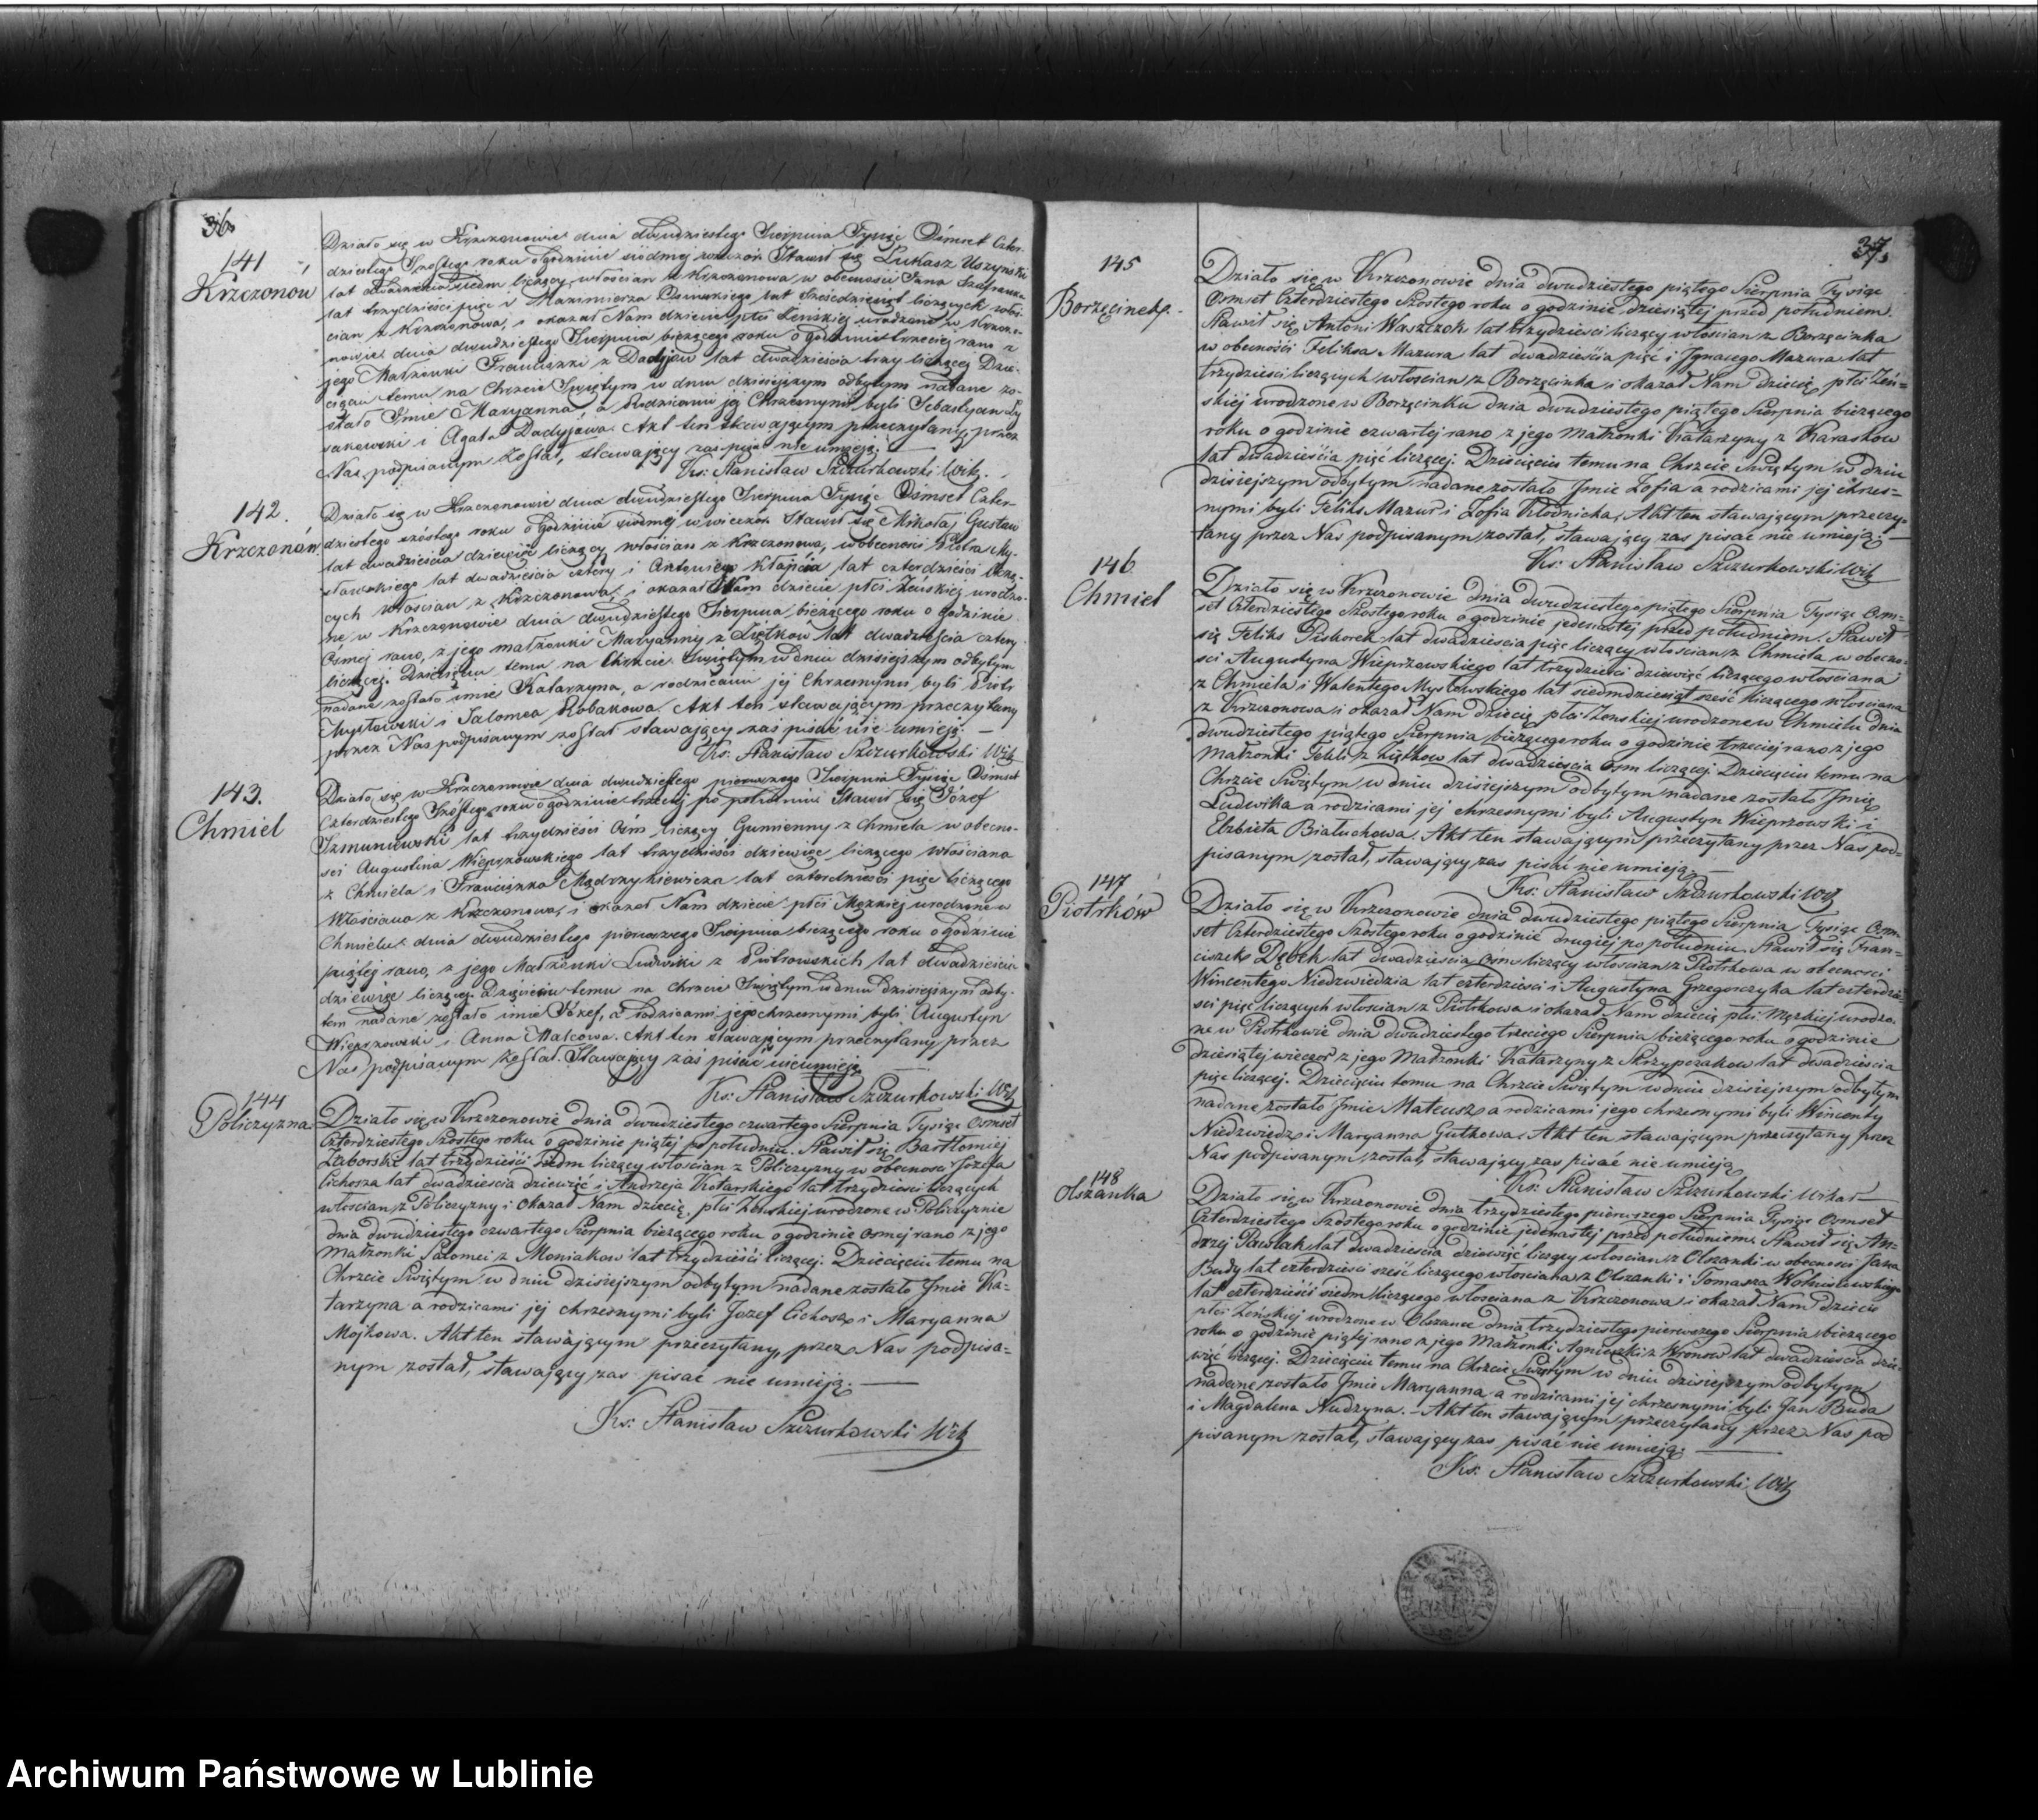 36
141
Krzczonów
Działo się w Krzczonowie dnia dwudziestego Sierpnia Tysiąc Ośmset Czter-
dziestego Szóstego roku o godzinie siódmej wieczór Stawił się Łukasz Uszyński
lat dwadzieścia siedm liczący, włościan z Krzczonowa w obecności Jana
lat trzydzieści pięć i Kazimierza lat sześćdziesiąt liczących włoś-
cian z Krzczonowa, i okazał Nam dziecie płci Żeńskiej urodzone w Krzczo-
nowie dnia dwudziestego Sierpnia bieżącego roku o godzinie trzeciej rano z
jego Małżonki Franciszki z Dadejów lat dwadzieścia trzy liczącej Dzie-
cięciu temu na Chrzcie Świętym w dniu dzisiejszym odbytym nadane zo-
stało Imie Maryanna, a Rodzicami jej Chrzesnymi byli Sebastyan
i Agata Akt ten stawającym przeczytany przez
Nas podpisanym został, stawający zaś pisać nie umieją.
Ks: Stanisław Szczurkowski Wik.
142.
Krzczonów.
Działo się w Krzczonowie dnia dwudziestego Sierpnia Tysiąc Ośmset Czter-
dziestego szóstego roku o godzinie siódmej wieczór Stawił się Mikołaj Gustaw
lat dwadzieścia dziewięć liczący włościan z Krzczonowa, w obecności Piotra My-
słowskiego lat dwadzieścia cztery i Antoniego Kłapcia lat czterdzieści licz-
cych włościan z Krzczonowa, i okazał Nam dziecie płci Żeńskiej urodzo-
ne w Krzczonowie dnia dwudziestego Sierpnia bieżącego roku o godzinie
Osmej rano, z jego małżonki Maryanny z Ziętków lat dwadzieścia cztery
liczącej. Dziecięciu temu na Chrzcie Świętym w dniu dzisiejszym odbytym
nadane zostało imie Katarzyna, a rodzicami jej Chrzesnymi byli Piotr
Mysłowski i Salomea Robakowa. Akt ten stawającym przeczytany
przez Nas podpisanym został stawający zaś pisać nie umieją.
Ks: Stanisław Szczurkowski Wik
143.
Chmiel
Działo się w Krzczonowie dnia dwudziestego pierwszego Sierpnia Tysiąc Ośmset
Czterdziestego Szóstego roku o godzinie trzeciej po południu Stawił się Józef
Szmuniewski lat trzydzieści Ośm liczący Gumienny z Chmiela w obecno-
ści Augustina Wieprzowskiego lat trzydzieści dziewięć liczącego włościana
z Chmiela i Franciszka Mądrzykiewicza lat czterdzieści pięć liczącego
Włościana z Krzczonowa, i okazał Nam dziecie płci Męzkiej urodzone w
Chmielu dnia dwudziestego pierwszego Sierpnia bieżącego roku o godzinie
piątej rano, z jego Małżonki Ludwiki z Piotrowskich, lat dwadzieścia
dziewięć liczącej. Dziecięciu temu na chrzcie Świętym w dniu dzisiejszym odby-
tem nadane zostało imie Józef, a rodzicami jego chrzesnymi byli Augustyn
Wieprzowski i Anna Malcowa. Akt ten stawającym przeczytany przez
Nas podpisanym został. Stawający zaś pisać nieumieją.
Ks: Stanisław Szczurkowski Wik
144
Policzyzna.
Działo się w Krzczonowie dnia dwudziestego czwartego Sierpnia Tysiąc Osmset
Czterdziestego Szostego roku o godzinie piątej po południu. Stawił się Bartłomiej
Zaborski lat trzydzieści siedm liczący włościan z Policzyzny w obecności Józefa
Cichosza lat dwadzieścia dziewięć i Andrzeja Kotarskiego lat trzydzieści liczących
włościan z Policzyzny i okazał Nam dziecię płci Żenskiej urodzone w Policzyznie
dnia dwudziestego czwartego Sierpnia bieżącego roku o godzinie osmej rano z jego
Małżonki Salomei z Moniakow lat trzydzieści liczącej. Dziecięciu temu na
Chrzcie Świętym w dniu dzisiejszym odbytym nadane zostało Imie Ka-
tarzyna a rodzicami jej chrzesnymi byli Jozef Cichosz i Maryanna
Mojkowa. Akt ten stawającym przeczytany, przez Nas podpisa-
nym został, stawający zas pisać nie umieją.
Ks: Stanisław Szczurkowski Wik
37.
145
Borzęcinek.
Działo się w Krzczonowie dnia dwudziestego piątego Sierpnia Tysiąc
Osmset Czterdziestego Szostego roku o godzinie dziesiątej przed południem.
Stawił się Antoni Waszczok lat trzydzieści liczący włościan z Borzęcinka
w obecności Feliksa Mazura lat dwadzieścia pięć i Ignacego Mazura lat
trzydzieści liczących włościan z Borzęcinka i okazał Nam dziecię, płci Żeń-
skiej urodzone w Borzęcinku dnia dwudziestego piątego Sierpnia bieżącego
roku o godzinie czwartej rano z jego Małżonki Katarzyny z Karaskow
lat dwadzieścia pięć liczącej. Dziecięciu temu na Chrzcie Świętym w dniu
dzisiejszym odbytym nadane zostało Imie Zofia a rodzicami jej chrzes-
nymi byli Feliks Mazur i Zofia Kłodnicka, Akt ten stawającym przeczy-
tany przez Nas podpisanym został, stawający zas pisać nie umieją.
Ks: Stanisław Szczurkowski Wik
146
Chmiel
Działo się w Krzczonowie dnia dwudziestego piątego Sierpnia Tysiąc Osm-
set Czterdziestego Szostego roku o godzinie jedenastej przed południem. Stawił
się Feliks Piskorek lat dwadzieścia pięc liczący włościan z Chmiela w obecno-
ści Augustyna Wieprzowskiego lat trzydzieści dziewięć liczącego włościana
z Chmiela i Walentego Mysłowskiego lat siedmdziesiąt sześć liczącego włościana
z Krzczonowa i okazał Nam dziecię płci Żenskiej urodzone w Chmielu dnia
dwudziestego piątego Sierpnia bieżącego roku o godzinie trzeciej rano z jego
Małżonki Tekli z Ziętkow lat dwadzieścia osm liczącej Dziecięciu temu na
Chrzcie Świętym w dniu dzisiejszym odbytym nadane zostało Imię
Ludwika a rodzicami jej chrzesnymi byli Augustyn Wieprzowski i
Elzbieta Białuchowa, Akt ten stawającym przeczytany przez Nas pod-
pisanym został, stawający zas pisać nie umieją.
Ks: Stanisław Szczurkowski Wik
147
Piotrków
Działo się w Krzczonowie dnia dwudziestego piątego Sierpnia Tysiąc Osm-
set Czterdziestego Szostego roku o godzinie drugiej po południu. Stawił się Fran-
ciszek Dębek lat dwadzieścia osm liczący włościan z Piotrkowa w obecności
Wincentego Niedzwiedzia lat czterdzieści i Augustyna Grzegorczyka lat czterdzie-
ści pięc liczących włościan z Piotrkowa i okazał Nam dziecię płci Męzkiej urodzo-
ne w Piotrkowie dnia dwudziestego trzeciego Sierpnia bieżącego roku o godzinie
dziesiątej wieczor z jego Małżonki Katarzyny z Skrzypczakow lat dwadzieścia
pięc liczącej. Dziecięciu temu na Chrzcie Świętym w dniu dzisiejszym odbytym
nadane zostało Imie Mateusz a rodzicami jego chrzesnymi byli Wincenty
Niedzwiedz i Maryanna Gutkowa. Akt ten stawającym przeczytany przez
Nas podpisanym został, stawający zas pisać nie umieją
Ks: Stanisław Szczurkowski Wikar
148
Olszanka
Działo się w Krzczonowie dnia trzydziestego pierwszego Sierpnia Tysiąc Osmset
Czterdziestego Szostego roku o godzinie jedenastej przed południem. Stawił się An-
drzej Pawlak lat dwadzieścia dziewięć liczący włościan z Olszanki w obecności Jana
Budy lat czterdzieści sześć liczącego włościana z Olszanki i Tomasza
lat czterdzieści siedm liczącego włościana z Krzczonowa i okazał Nam dziecie
płci Żeńskiej urodzone w Olszance dnia trzydziestego pierwszego Sierpnia bieżącego
roku o godzinie piątej rano z jego Małżonki Agnieszki z Wronow lat dwadzieścia dzie-
więć liczącej. Dziecięciu temu na Chrzcie Świętym w dniu dzisiejszym odbytym
nadane zostało Imie Maryanna a rodzicami jej chrzesnymi byli Jan Buda
i Magdalena Nudzyna. - Akt ten stawającym przeczytany przez Nas pod
pisanym został, stawający zas pisać nie umieją.
Ks: Stanisław Szczurkowski Wik
Archiwum Państwowe w Lublinie